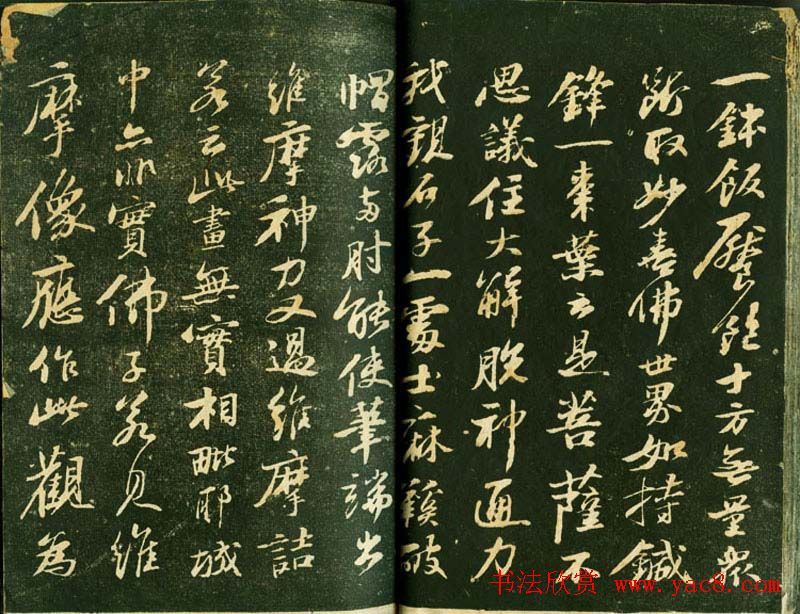 一鉢飯饜飽十方無量衆
斷取妙喜佛世界如持鍼
鋒一棗葉云是菩薩不
思議住大解脫神通力
我觀石子一處士麻鞵破
帽露兩肘能使筆端出
維摩神力又過維摩詰
若云此畫無實相毗耶城
中亦非實佛子若見維
摩像應作此觀為
书法欣赏 www.yac8.com